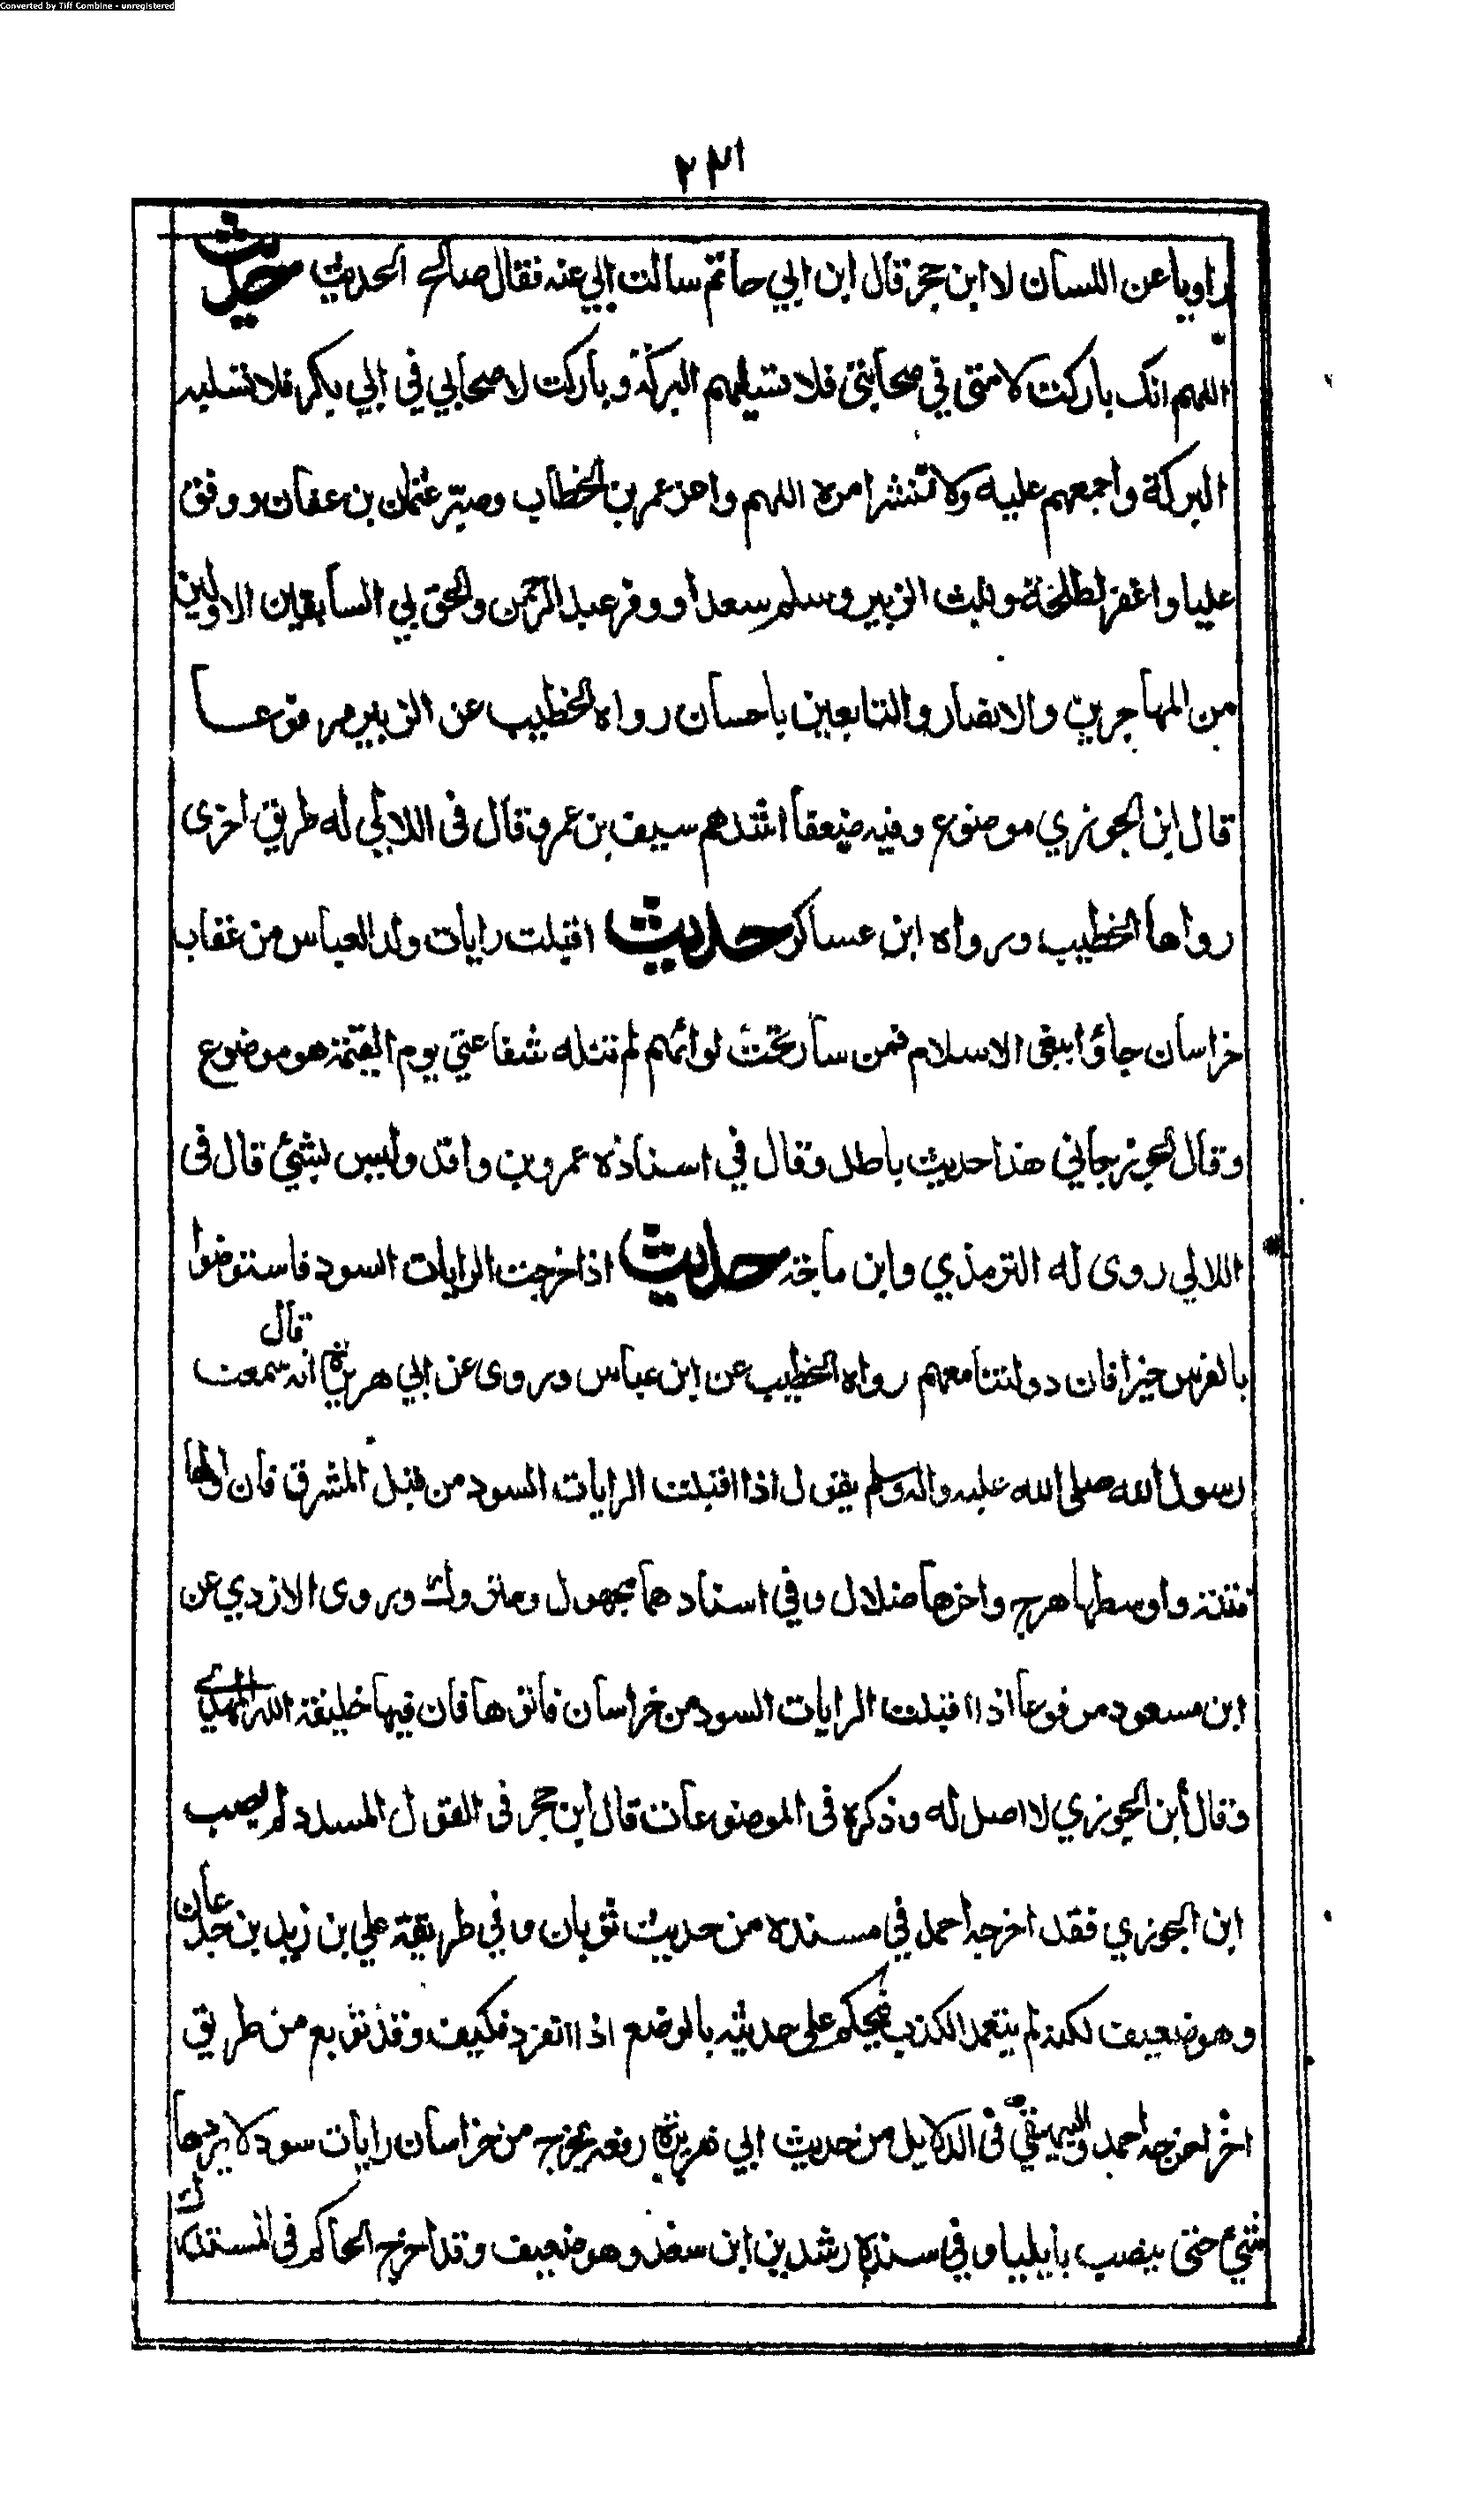 Converted by Tiff Combine - unregistered
٢٣١
راويا عن اللسان لا ابن حجر قال ابن ابي حاتم سالت ابي عنه فقال صالح الحديث حديث
اللهم انك باركت لامتي في صحابتي فلا تسلبهم البركة وباركت لاصحابي في ابي بكر فلا تسلبه
البركة واجمعهم عليه ولا تنشر امره اللهم واعز عمر بن الخطاب وصبر عثمان بن عفان ووفق
عليا واغفر لطلحة وثبت الزبير وسلم سعدا ووقر عبد الرحمن والحق بي السابقين الاولين
من المهاجرين والانصار والتابعين باحسان رواه الخطيب عن الزبير مرفوعا
قال ابن الجوزي موضوع وفيه ضعفا اشدهم سيف بن عمر وقال في اللالي له طريق اخرى
رواها الخطيب ورواه ابن عساكر حديث اقبلت رايات ولد العباس من عقاب
خراسان جاؤا ببغي الاسلام فمن سار تحت لوائهم لم تنله شفاعتي يوم القيمة هو موضوع
وقال الجوزجاني هذا حديث باطل وقال في اسناده عمرو بن واقد وليس بشيئ قال في
اللالي روى له الترمذي وابن ماجة حديث اذا خرجت الرايات السود فاستوصوا
بالفرس خيرا فان دولتنا معهم رواه الخطيب عن ابن عباس وروى عن ابي هريرة انه قال سمعت
رسول الله صلى الله عليه واله وسلم يقول اذا اقبلت الرايات السود من قبل المشرق فان اولها
فتنة واوسطها هرج واخرها ضلال وفي اسنادهما مجهول ومتروك وروى الازدي عن
ابن مسعود مرفوعا اذا اقبلت الرايات السود من خراسان فاتوها فان فيها خليفة الله المهدي
وقال ابن الجوزي لا اصل له وذكره في الموضوعات قال ابن حجر في القول المسدد لم يصب
ابن الجوزي فقد اخرجه احمد في مسنده من حديث ثوبان وفي طريقة علي بن زيد بن جدعان
وهو ضعيف لكنه لم يتعمد الكذب فيحكم على حديثه بالوضع اذا انفرد فكيف وقد توبع من طريق
اخر اخرجه احمد والبيهقي في الدلايل من حديث ابي هريرة رفعه يخرج من خراسان رايات سود لا يردها
شيئ حتى ينصب بايليا وفي سنده رشدين ابن سعد وهو ضعيف وقد اخرج الحاكم في المستدرك